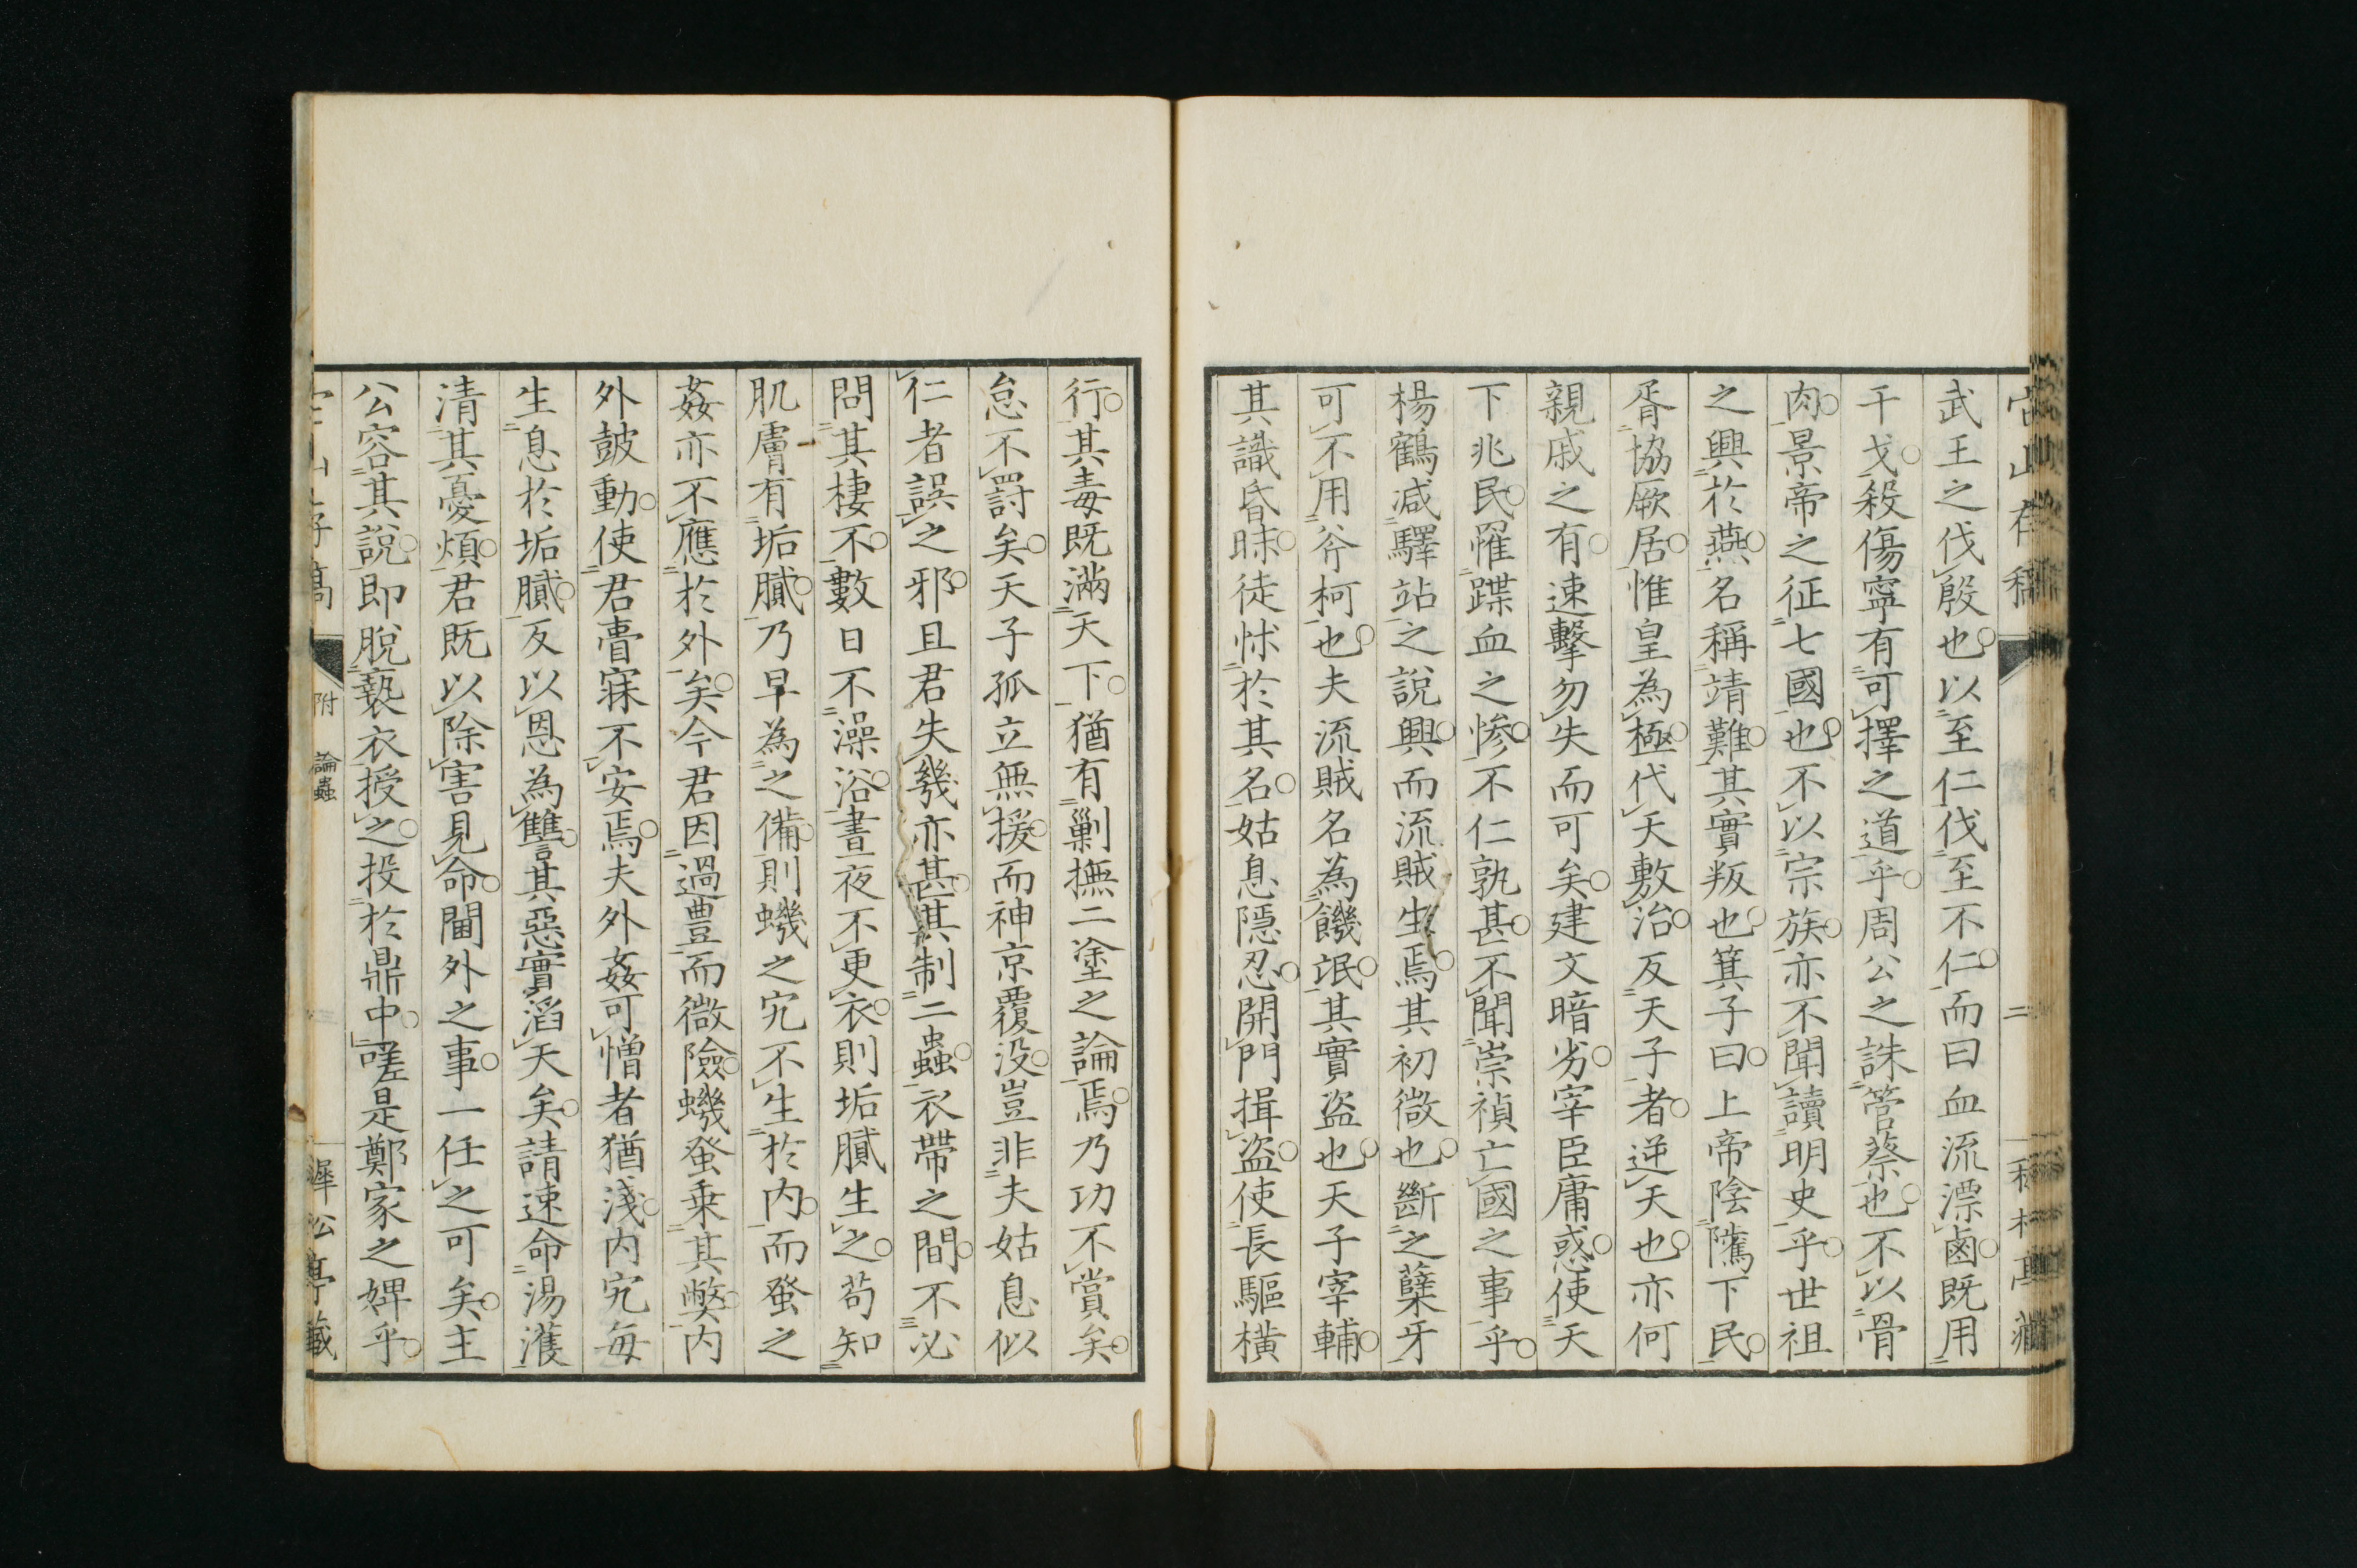 武王之伐殷也以至仁伐至不仁而曰血流漂鹵既用
干戈殺傷寧有可擇之道乎周公之誅管蔡也不以骨
肉景帝之征七國也不以宗族亦不聞讀明史乎世祖
之興於燕名稱靖難其實叛也箕子曰上帝陰隲下民
胥協厥居惟皇為極代天敷治反天子者逆天也亦何
親戚之有速擊勿失而可矣建文暗劣宰臣庸惑使天
下兆民罹蹀血之慘不仁孰甚不聞崇禎亡國之事乎
楊鶴減驛站之說興而流賊生焉其初微也斷之蘖牙
可不用斧柯也夫流賊名為饑氓其實盜也天子宰輔
其識昏昧徒怵於其名姑息隱忍開門揖盜使長驅橫
行其毒既滿天下猶有剿撫二塗之論焉乃功不賞矣
怠不罸矣天子孤立無援而神京覆没豈非夫姑息似
仁者誤之邪且君失幾亦甚其制二蟲衣帶之間不必
問其棲不數日不澡浴晝夜不更衣則垢膩生之苟知
肌膚有垢膩乃早為之備則蟣之宄不生於内而蝨之
姦亦不應於外矣今君因過豊而微險蟣蝨乗其弊内
外皷動使君瞢寐不安焉夫外姦可憎者猶淺内宄毎
生息於垢膩反以恩為讐其惡實滔天矣請速命湯濩
清其憂煩君既以除害見命閫外之事一任之可矣主
公容其說即脫褻衣授之投於鼎中嗟是鄭家之婢乎
附 論蟲